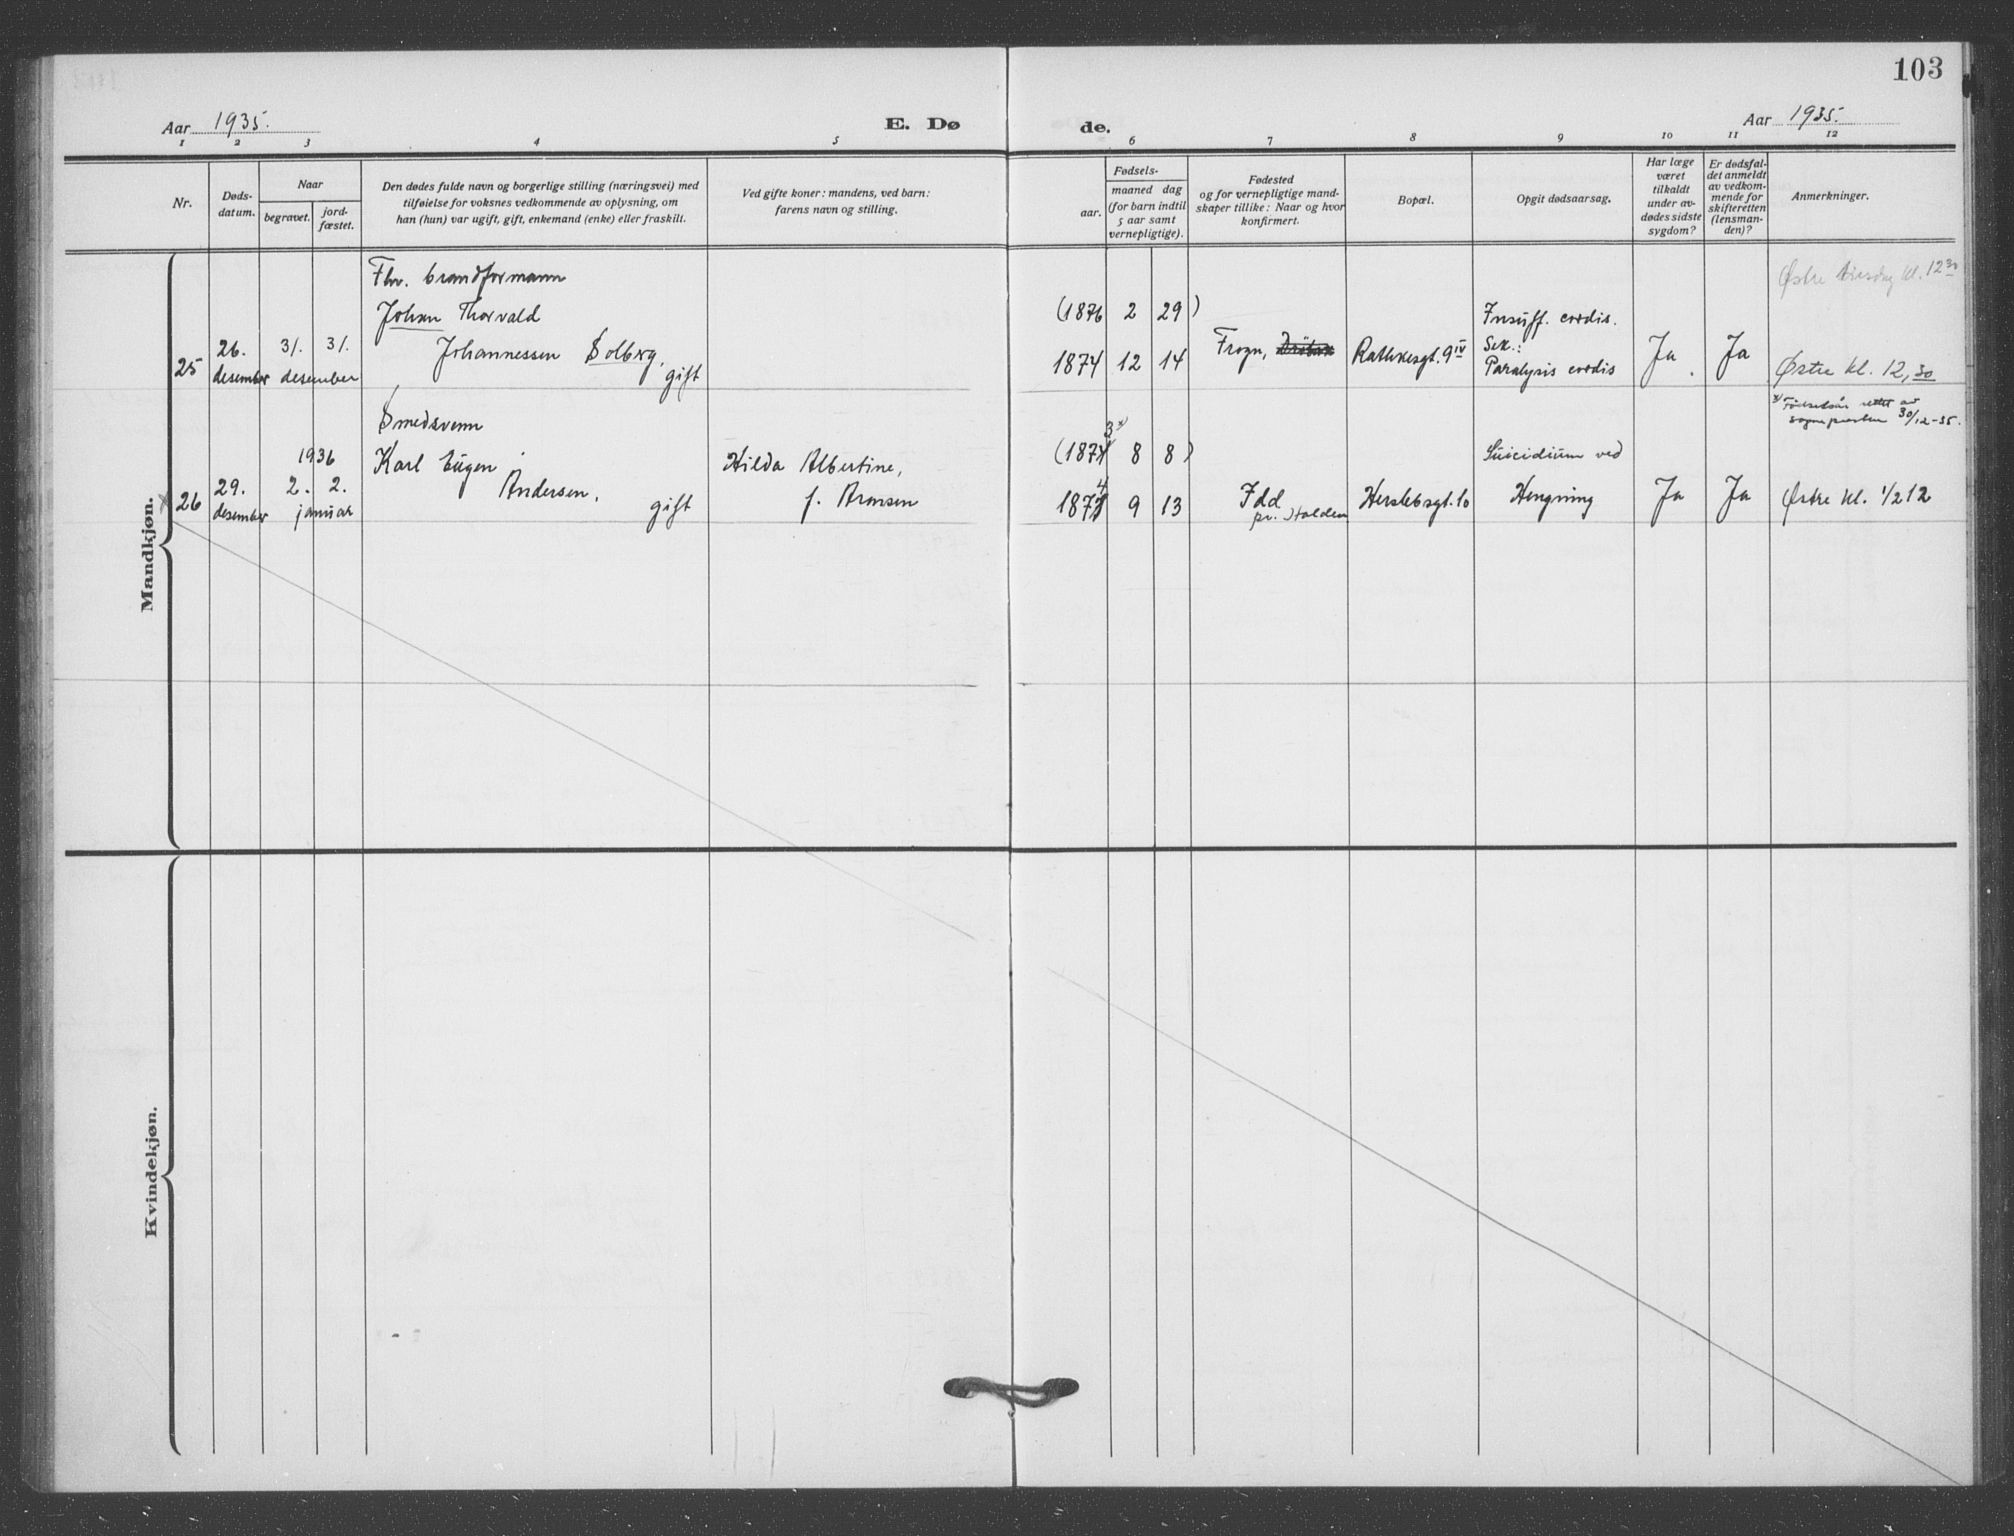 103
Aar 1935.
E. Dø
de.
Aar 1935.
1 2 3 4 5 6 7 8 9 10 11 12
Nr.
Døds-
datum.
Naar
begravet.
jord-
fæstet.
Den dødes fulde navn og borgerlige stilling (næringsvei) med
tilføielse for voksnes vedkommende av oplysning, om
han (hun) var ugift, gift, enkemand (enke) eller fraskilt.
Ved gifte koner: mandens, ved barn:
farens navn og stilling.
Fødsels-
aar.
maaned dag
(for barn indtil
5 aar samt
vernepligtige).
Fødested
og for vernepligtige mand-
skaper tillike: Naar og hvor
konfirmert.
Bopæl.
Opgit dødsaarsag.
Har læge
været
tilkaldt
under av-
dødes sidste
sygdom?
Er dødsfal-
det anmeldt
av vedkom-
mende for
skifteretten
(lensman-
den)?
Anmerkninger.
Mandkjøn.
25
26.
desember
31. 31.
desember
Fhv. brandformann
Johan Thorvald
Johannessen Solberg,
gift
(1876 2 29)
1874 12 14
Frogn,
Rathkesgt. 9 IV
Insuff. cordis.
Sek.:
Paralysis cordis
Ja
Ja
Østre kl. 12 30
Østre kl. 12,30
x) Fødselsår rettet av
sognepresten 30/12-35.
26
29.
desember
1936
2. 2.
januar
Smedsvenn
Karl Eugen
Andersen,
gift
Hilda Albertine,
f. Aronsen
3 x)
(187 8 8)
4
187 9 13
Idd
pr. Halden
Herslebsgt. 10
Suicidium ved
Hengning
Ja
Ja
Østre kl. 1/2 12
Kvindekjøn.